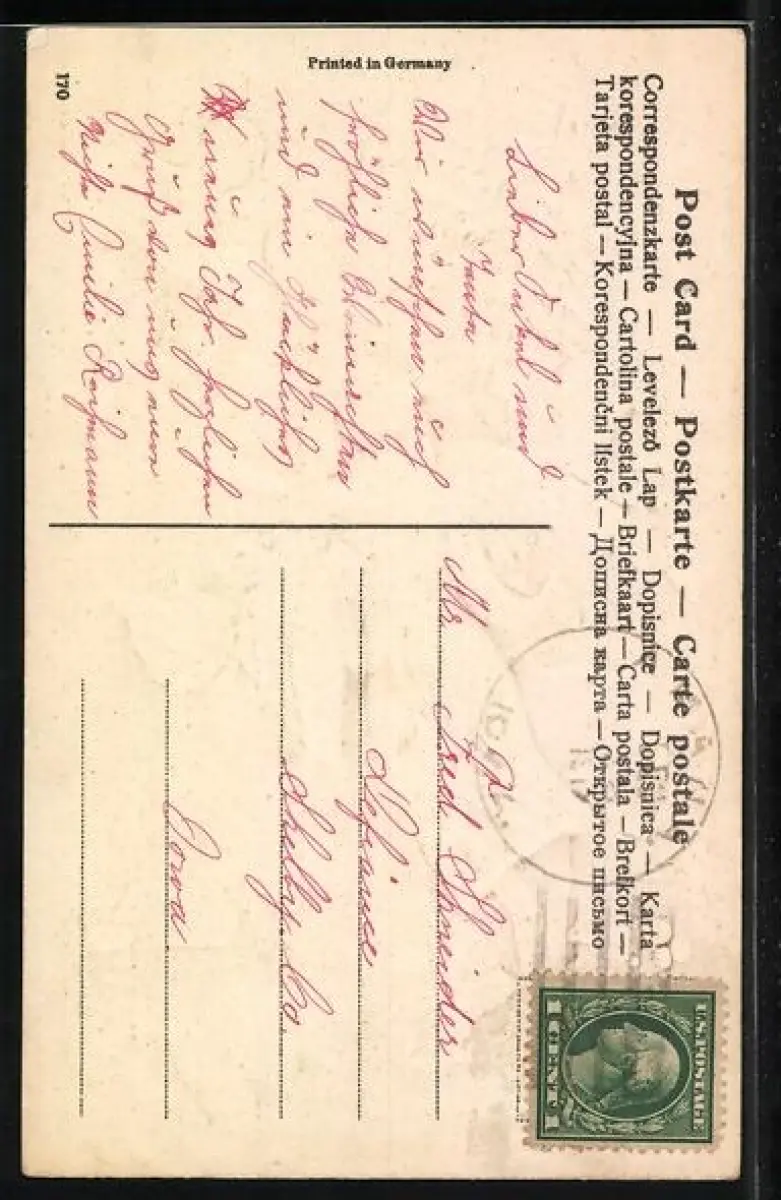 Post Card — Postkarte — Carte postale
Correspondenzkarte — Levelező Lap — Dopisnice — Dopisnica — Karta
korespondencyjna — Cartolina postale — Briefkaart — Carta postala — Brefkort —
Tarjeta postal — Korespondenčni lístek — Дописна карта — Открытое письмо
Printed in Germany
170
Lieber Onkel und
Tante
Wir wünschen euch
fröhliche Weinachten
und ein glückliches
neues Jahr.
Gruß von
Emilie
Mr Fred Shneider
Defiance
Shelby Co.
Iowa
U.S.POSTAGE
1 CENT 1